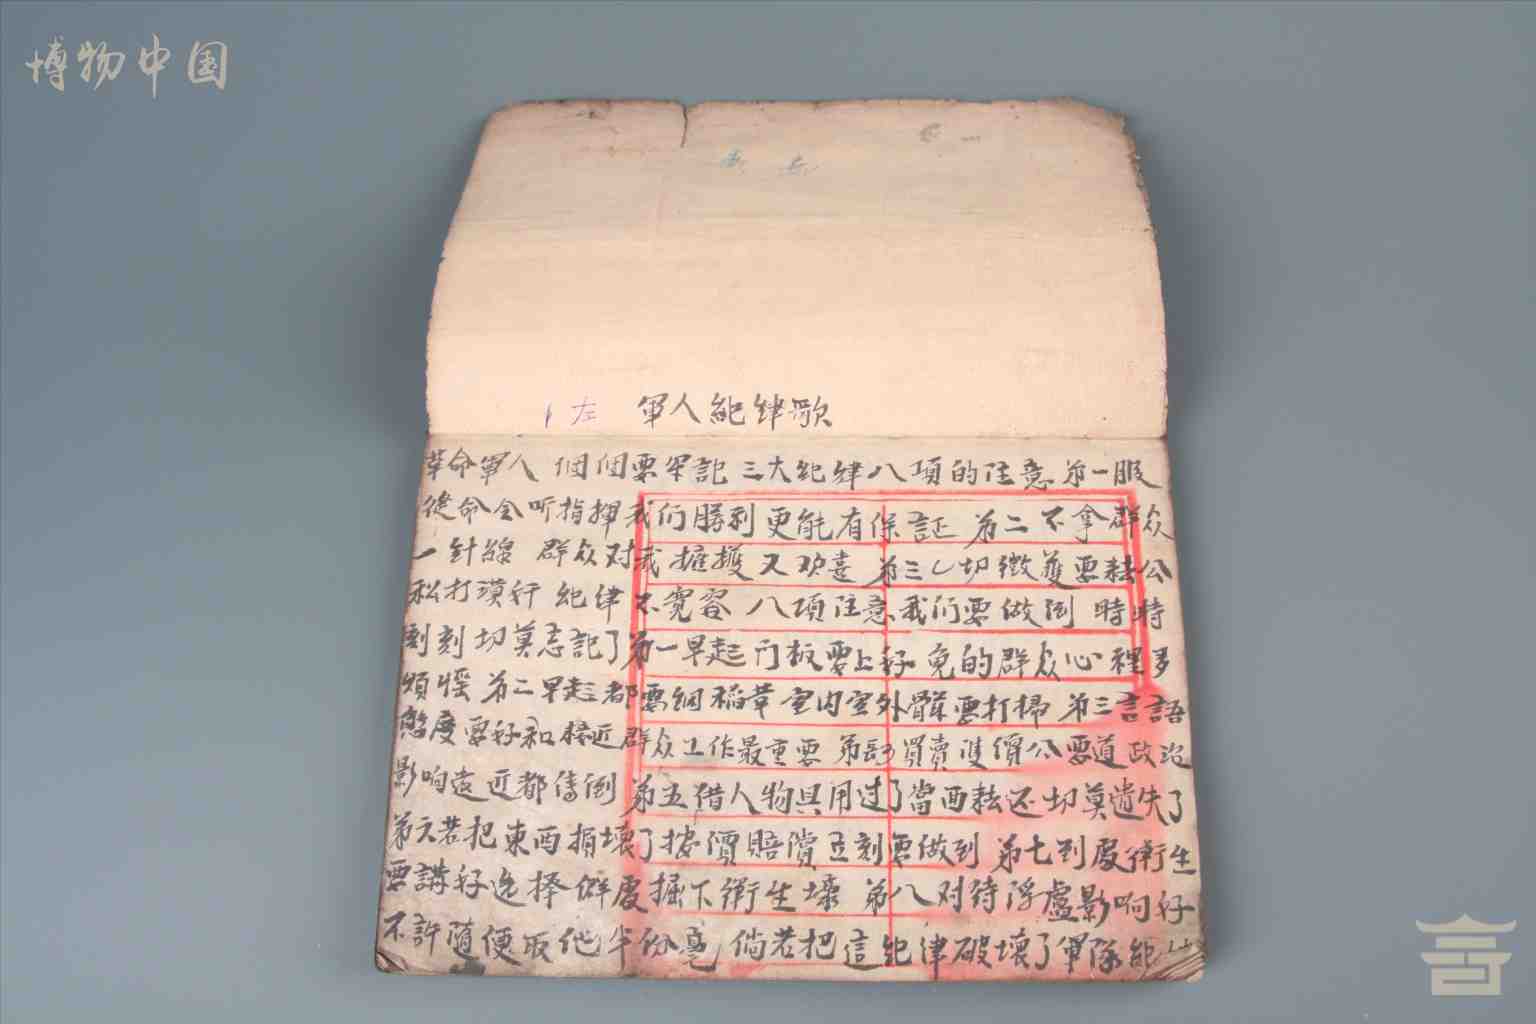 博物中国
左 軍人紀律歌
革命軍人 個個要牢記 三大紀律八項的注意 第一服
從命令听指揮 我们勝利更能有保証 第二不拿群众
一針線 群众对我擁護又欢喜 第三一切繳獲要耛公
私打漢奸 紀律不寬容 八項注意我们要做到 時時
刻刻切莫忘記了 第一早起門板要上好 免的群众心裡多
煩惱 第二早起都要綑稻草 室内室外都要打掃 第三言語
態度要好和接近群众工作最重要 第四買賣雙價公要道政治
影响遠近都傳倒 第五借人物具用过了當面耛还切莫遺失了
第六若把東西損壞了按價賠償立刻要做到 第七到處衛生
要講好选擇僻處掘下衛生壕 第八对待浮虜影响好
不許隨便取他半份毫 倘若把這紀律破壞了軍隊紀